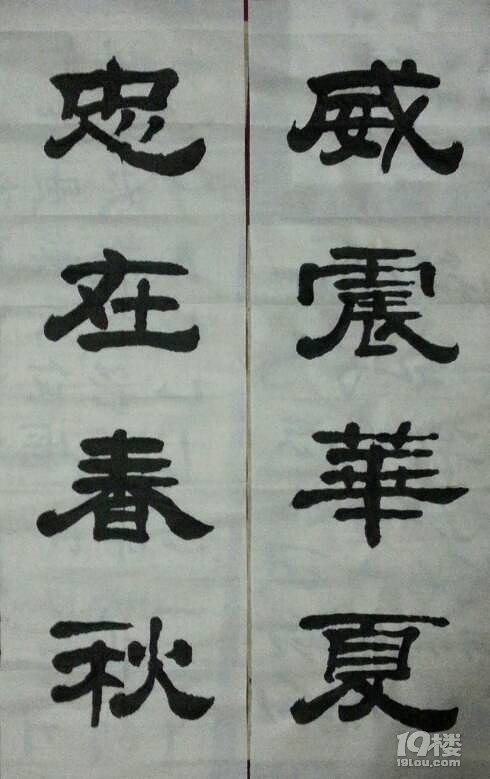 威震華夏
忠在春秋
19楼
19lou.com